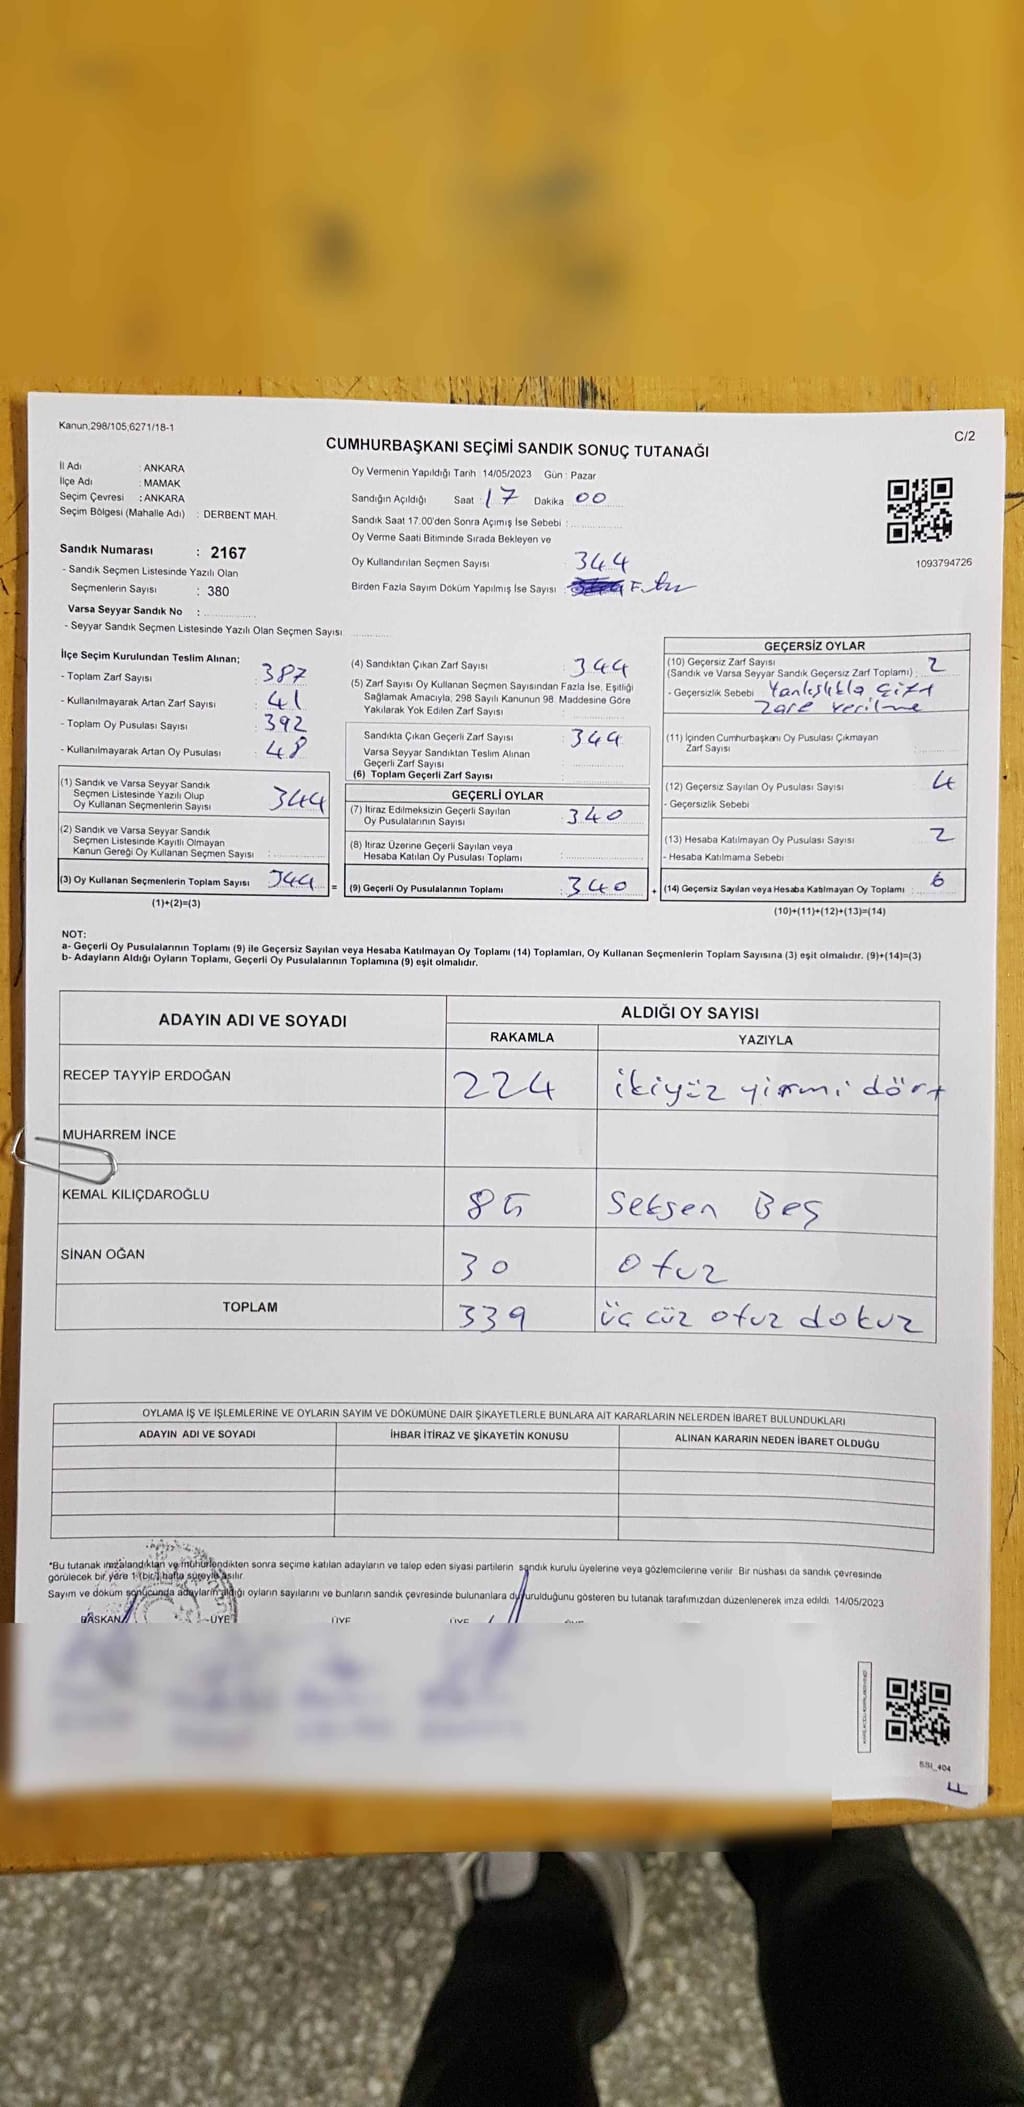 Kanun,298/105,6271/18-1
C/2
CUMHURBAŞKANI SEÇİMİ SANDIK SONUÇ TUTANAĞI
İl Adı : ANKARA
İlçe Adı : MAMAK
Seçim Çevresi : ANKARA
Seçim Bölgesi (Mahalle Adı) : DERBENT MAH.
Sandık Numarası : 2167
- Sandık Seçmen Listesinde Yazılı Olan
Seçmenlerin Sayısı : 380
Varsa Seyyar Sandık No :
- Seyyar Sandık Seçmen Listesinde Yazılı Olan Seçmen Sayısı
Oy Vermenin Yapıldığı Tarih 14/05/2023 Gün : Pazar
Sandığın Açıldığı Saat : 17 Dakika 00
Sandık Saat 17.00'den Sonra Açımış İse Sebebi :
Oy Verme Saati Bitiminde Sırada Bekleyen ve
Oy Kullandırılan Seçmen Sayısı 344
Birden Fazla Sayım Döküm Yapılmış İse Sayısı :
1093794726
İlçe Seçim Kurulundan Teslim Alınan;
- Toplam Zarf Sayısı : 387
- Kullanılmayarak Artan Zarf Sayısı : 41
- Toplam Oy Pusulası Sayısı : 392
- Kullanılmayarak Artan Oy Pusulası : 48
(1) Sandık ve Varsa Seyyar Sandık
Seçmen Listesinde Yazılı Olup
Oy Kullanan Seçmenlerin Sayısı 344
(2) Sandık ve Varsa Seyyar Sandık
Seçmen Listesinde Kayıtlı Olmayan
Kanun Gereği Oy Kullanan Seçmen Sayısı :
(3) Oy Kullanan Seçmenlerin Toplam Sayısı 344
(1)+(2)=(3)
=
(4) Sandıktan Çıkan Zarf Sayısı : 344
(5) Zarf Sayısı Oy Kullanan Seçmen Sayısından Fazla İse, Eşitliği
Sağlamak Amacıyla, 298 Sayılı Kanunun 98. Maddesine Göre
Yakılarak Yok Edilen Zarf Sayısı :
Sandıkta Çıkan Geçerli Zarf Sayısı : 344
Varsa Seyyar Sandıktan Teslim Alınan
Geçerli Zarf Sayısı
(6) Toplam Geçerli Zarf Sayısı
GEÇERLİ OYLAR
(7) İtiraz Edilmeksizin Geçerli Sayılan
Oy Pusulalarının Sayısı : 340
(8) İtiraz Üzerine Geçerli Sayılan veya
Hesaba Katılan Oy Pusulası Toplamı :
(9) Geçerli Oy Pusulalarının Toplamı : 340
+
GEÇERSİZ OYLAR
(10) Geçersiz Zarf Sayısı
(Sandık ve Varsa Seyyar Sandık Geçersiz Zarf Toplamı) : 2
- Geçersizlik Sebebi Yanlışlıkla çift
Zarf verilme
(11) İçinden Cumhurbaşkanı Oy Pusulası Çıkmayan
Zarf Sayısı
(12) Geçersiz Sayılan Oy Pusulası Sayısı 4
- Geçersizlik Sebebi
(13) Hesaba Katılmayan Oy Pusulası Sayısı 2
- Hesaba Katılmama Sebebi
(14) Geçersiz Sayılan veya Hesaba Katılmayan Oy Toplamı : 6
(10)+(11)+(12)+(13)=(14)
NOT:
a- Geçerli Oy Pusulalarının Toplamı (9) ile Geçersiz Sayılan veya Hesaba Katılmayan Oy Toplamı (14) Toplamları, Oy Kullanan Seçmenlerin Toplam Sayısına (3) eşit olmalıdır. (9)+(14)=(3)
b- Adayların Aldığı Oyların Toplamı, Geçerli Oy Pusulalarının Toplamına (9) eşit olmalıdır.
ADAYIN ADI VE SOYADI
ALDIĞI OY SAYISI
RAKAMLA YAZIYLA
RECEP TAYYİP ERDOĞAN 224 ikiyüz yirmi dört
MUHARREM İNCE
KEMAL KILIÇDAROĞLU 85 Seksen Beş
SİNAN OĞAN 30 otuz
TOPLAM 339 üç cüz otuz dokuz
OYLAMA İŞ VE İŞLEMLERİNE VE OYLARIN SAYIM VE DÖKÜMÜNE DAİR ŞİKAYETLERLE BUNLARA AİT KARARLARIN NELERDEN İBARET BULUNDUKLARI
ADAYIN ADI VE SOYADI İHBAR İTİRAZ VE ŞİKAYETİN KONUSU ALINAN KARARIN NEDEN İBARET OLDUĞU
*Bu tutanak imzalandıktan ve mühürlendikten sonra seçime katılan adayların ve talep eden siyasi partilerin sandık kurulu üyelerine veya gözlemcilerine verilir. Bir nüshası da sandık çevresinde
görülecek bir yere 1 (bir) hafta süreyle asılır.
Sayım ve döküm sonucunda adayların aldığı oyların sayılarını ve bunların sandık çevresinde bulunanlara duyurulduğunu gösteren bu tutanak tarafımızdan düzenlenerek imza edildi. 14/05/2023
BAŞKAN ÜYE ÜYE ÜYE
SSI_404